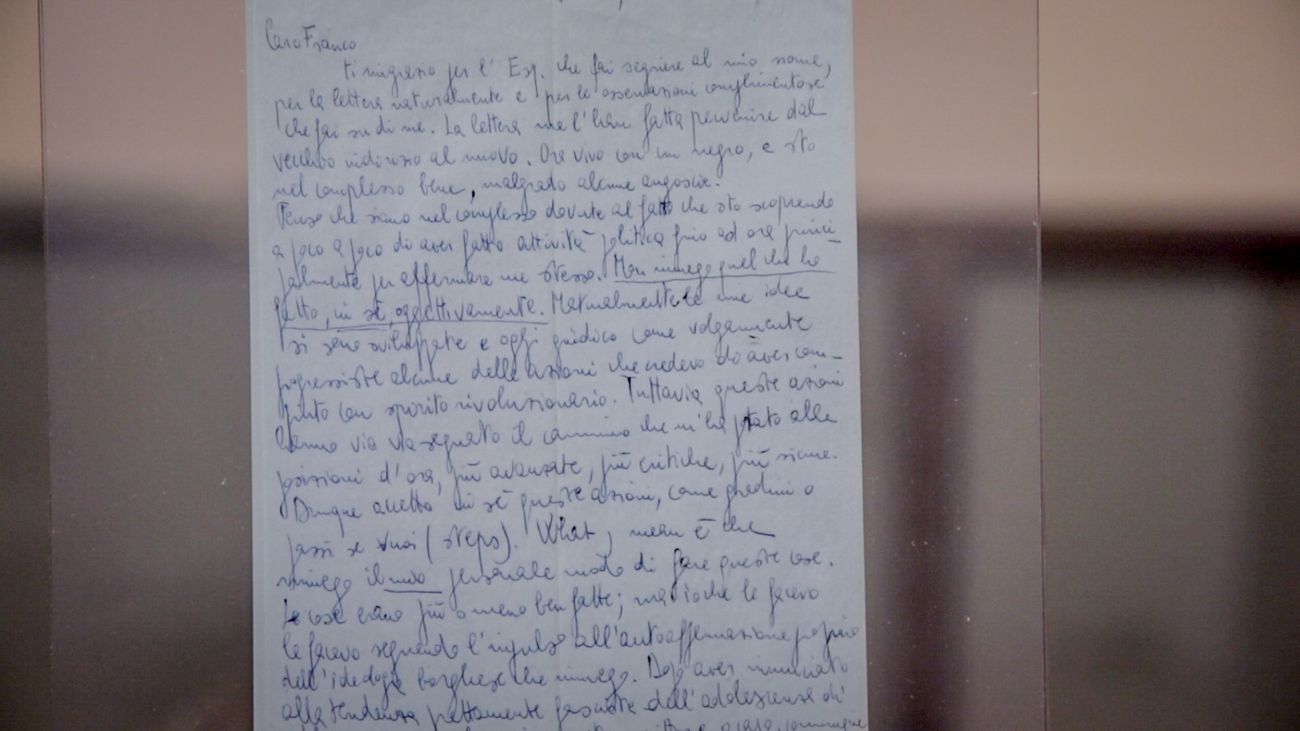 Caro Franco
ti ringrazio per l'Esq. che fai seguire al mio nome,
per la lettera naturalmente e per le osservazioni complimentose
che fai su di me. La lettera me l'han fatta pervenire dal
vecchio indirizzo al nuovo. Ora vivo con un negro, e sto
nel complesso bene, malgrado alcune angoscie.
Penso che siano nel complesso dovute al fatto che sto scoprendo
a poco a poco di aver fatto attività politica fino ad ora princi-
palmente per affermare me stesso. Non rinnego quel che ho
fatto, in sè, oggettivamente. Naturalmente le mie idee
si sono sviluppate e oggi giudico come volgarmente
progressiste alcune delle azioni che credevo di aver com-
piuto con spirito rivoluzionario. Tuttavia queste azioni
hanno via via segnato il cammino che mi ha ptato alle
posizioni d'ora, più avanzate, più critiche, più sicure.
Dunque accetto in sè queste azioni, come gradini o
passi se vuoi (steps). What I mean è che
rinnego il mio personale modo di fare queste cose.
Le cose erano più o meno ben fatte; ma io che le facevo
le facevo seguendo l'impulso all'autoaffermazione proprio
dell'ideologia borghese che rinnego. Dopo aver rinunciato
alla tendenza prettamente fascista dell'adolescenza di